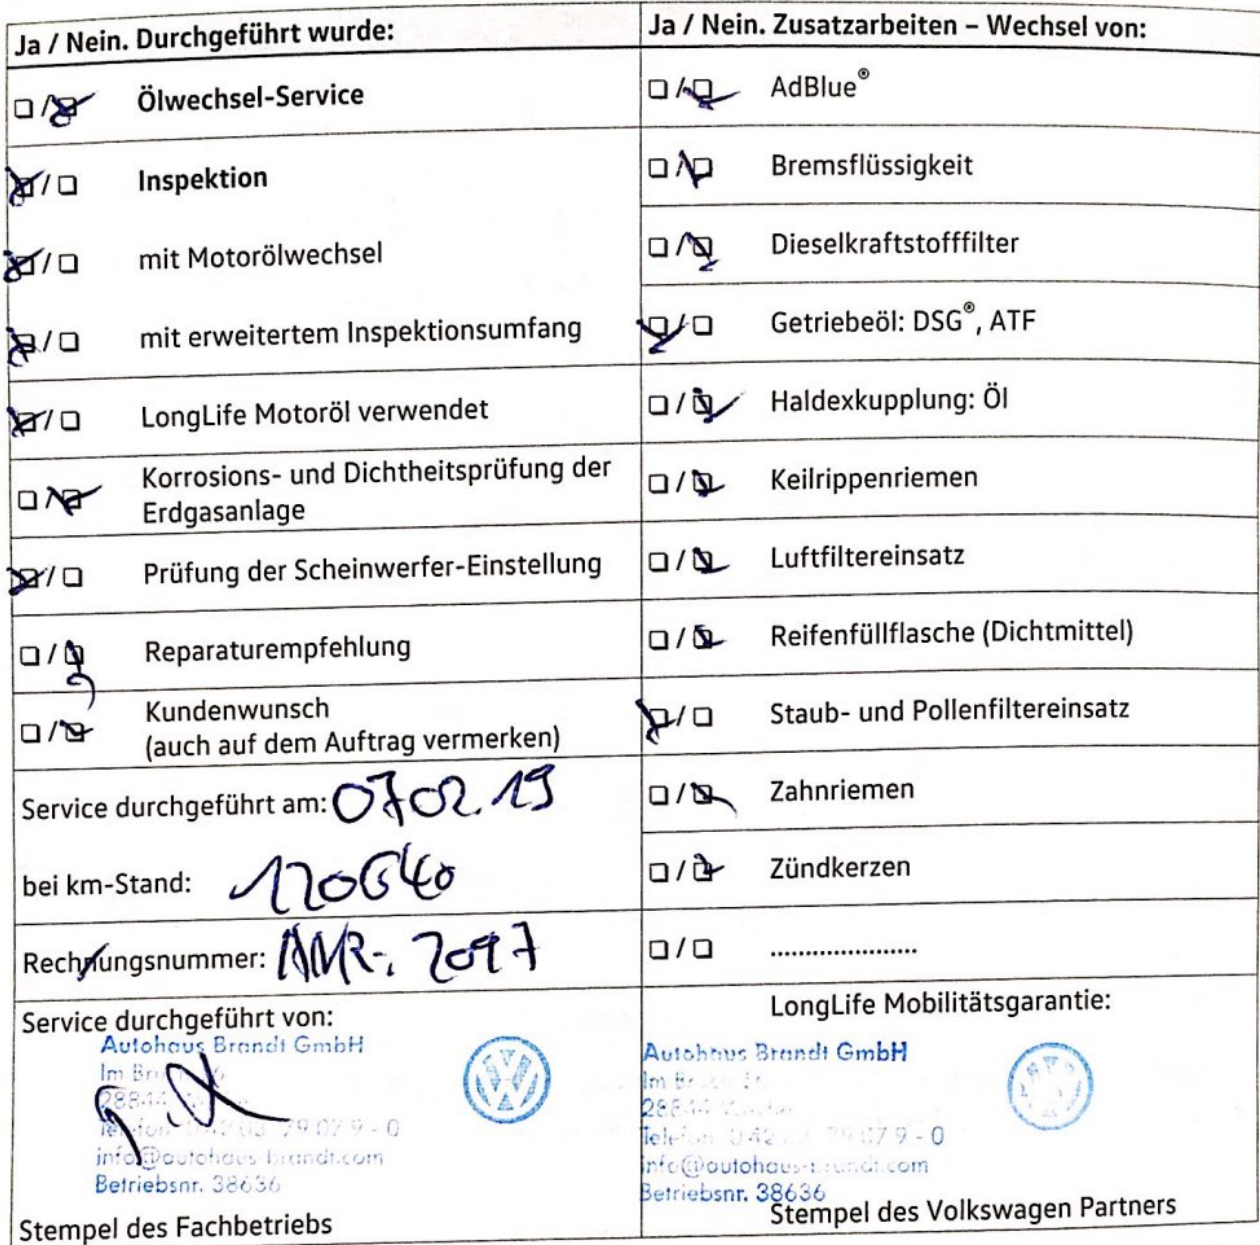 Ja / Nein. Durchgeführt wurde:
☐ / ☒ Ölwechsel-Service
☒ / ☐ Inspektion
☒ / ☐ mit Motorölwechsel
☒ / ☐ mit erweitertem Inspektionsumfang
☒ / ☐ LongLife Motoröl verwendet
☐ / ☒ Korrosions- und Dichtheitsprüfung der
Erdgasanlage
☒ / ☐ Prüfung der Scheinwerfer-Einstellung
☐ / ☒ Reparaturempfehlung
☐ / ☒ Kundenwunsch
(auch auf dem Auftrag vermerken)
Service durchgeführt am: 07.02.19
bei km-Stand: 120640
Rechnungsnummer: ANR-: 2097
Service durchgeführt von:
Autohaus Brandt GmbH
Im
28844
Telefon 0 42 03 79 07 9 - 0
info@autohaus-brandt.com
Betriebsnr. 38636
Stempel des Fachbetriebs
Ja / Nein. Zusatzarbeiten – Wechsel von:
☐ / ☒ AdBlue®
☐ / ☒ Bremsflüssigkeit
☐ / ☒ Dieselkraftstofffilter
☒ / ☐ Getriebeöl: DSG®, ATF
☐ / ☒ Haldexkupplung: Öl
☐ / ☒ Keilrippenriemen
☐ / ☒ Luftfiltereinsatz
☐ / ☒ Reifenfüllflasche (Dichtmittel)
☒ / ☐ Staub- und Pollenfiltereinsatz
☐ / ☒ Zahnriemen
☐ / ☒ Zündkerzen
☐ / ☐ .....................
LongLife Mobilitätsgarantie:
Autohaus Brandt GmbH
Im
28844
Telefon 0 42 03 79 07 9 - 0
info@autohaus-brandt.com
Betriebsnr. 38636
Stempel des Volkswagen Partners